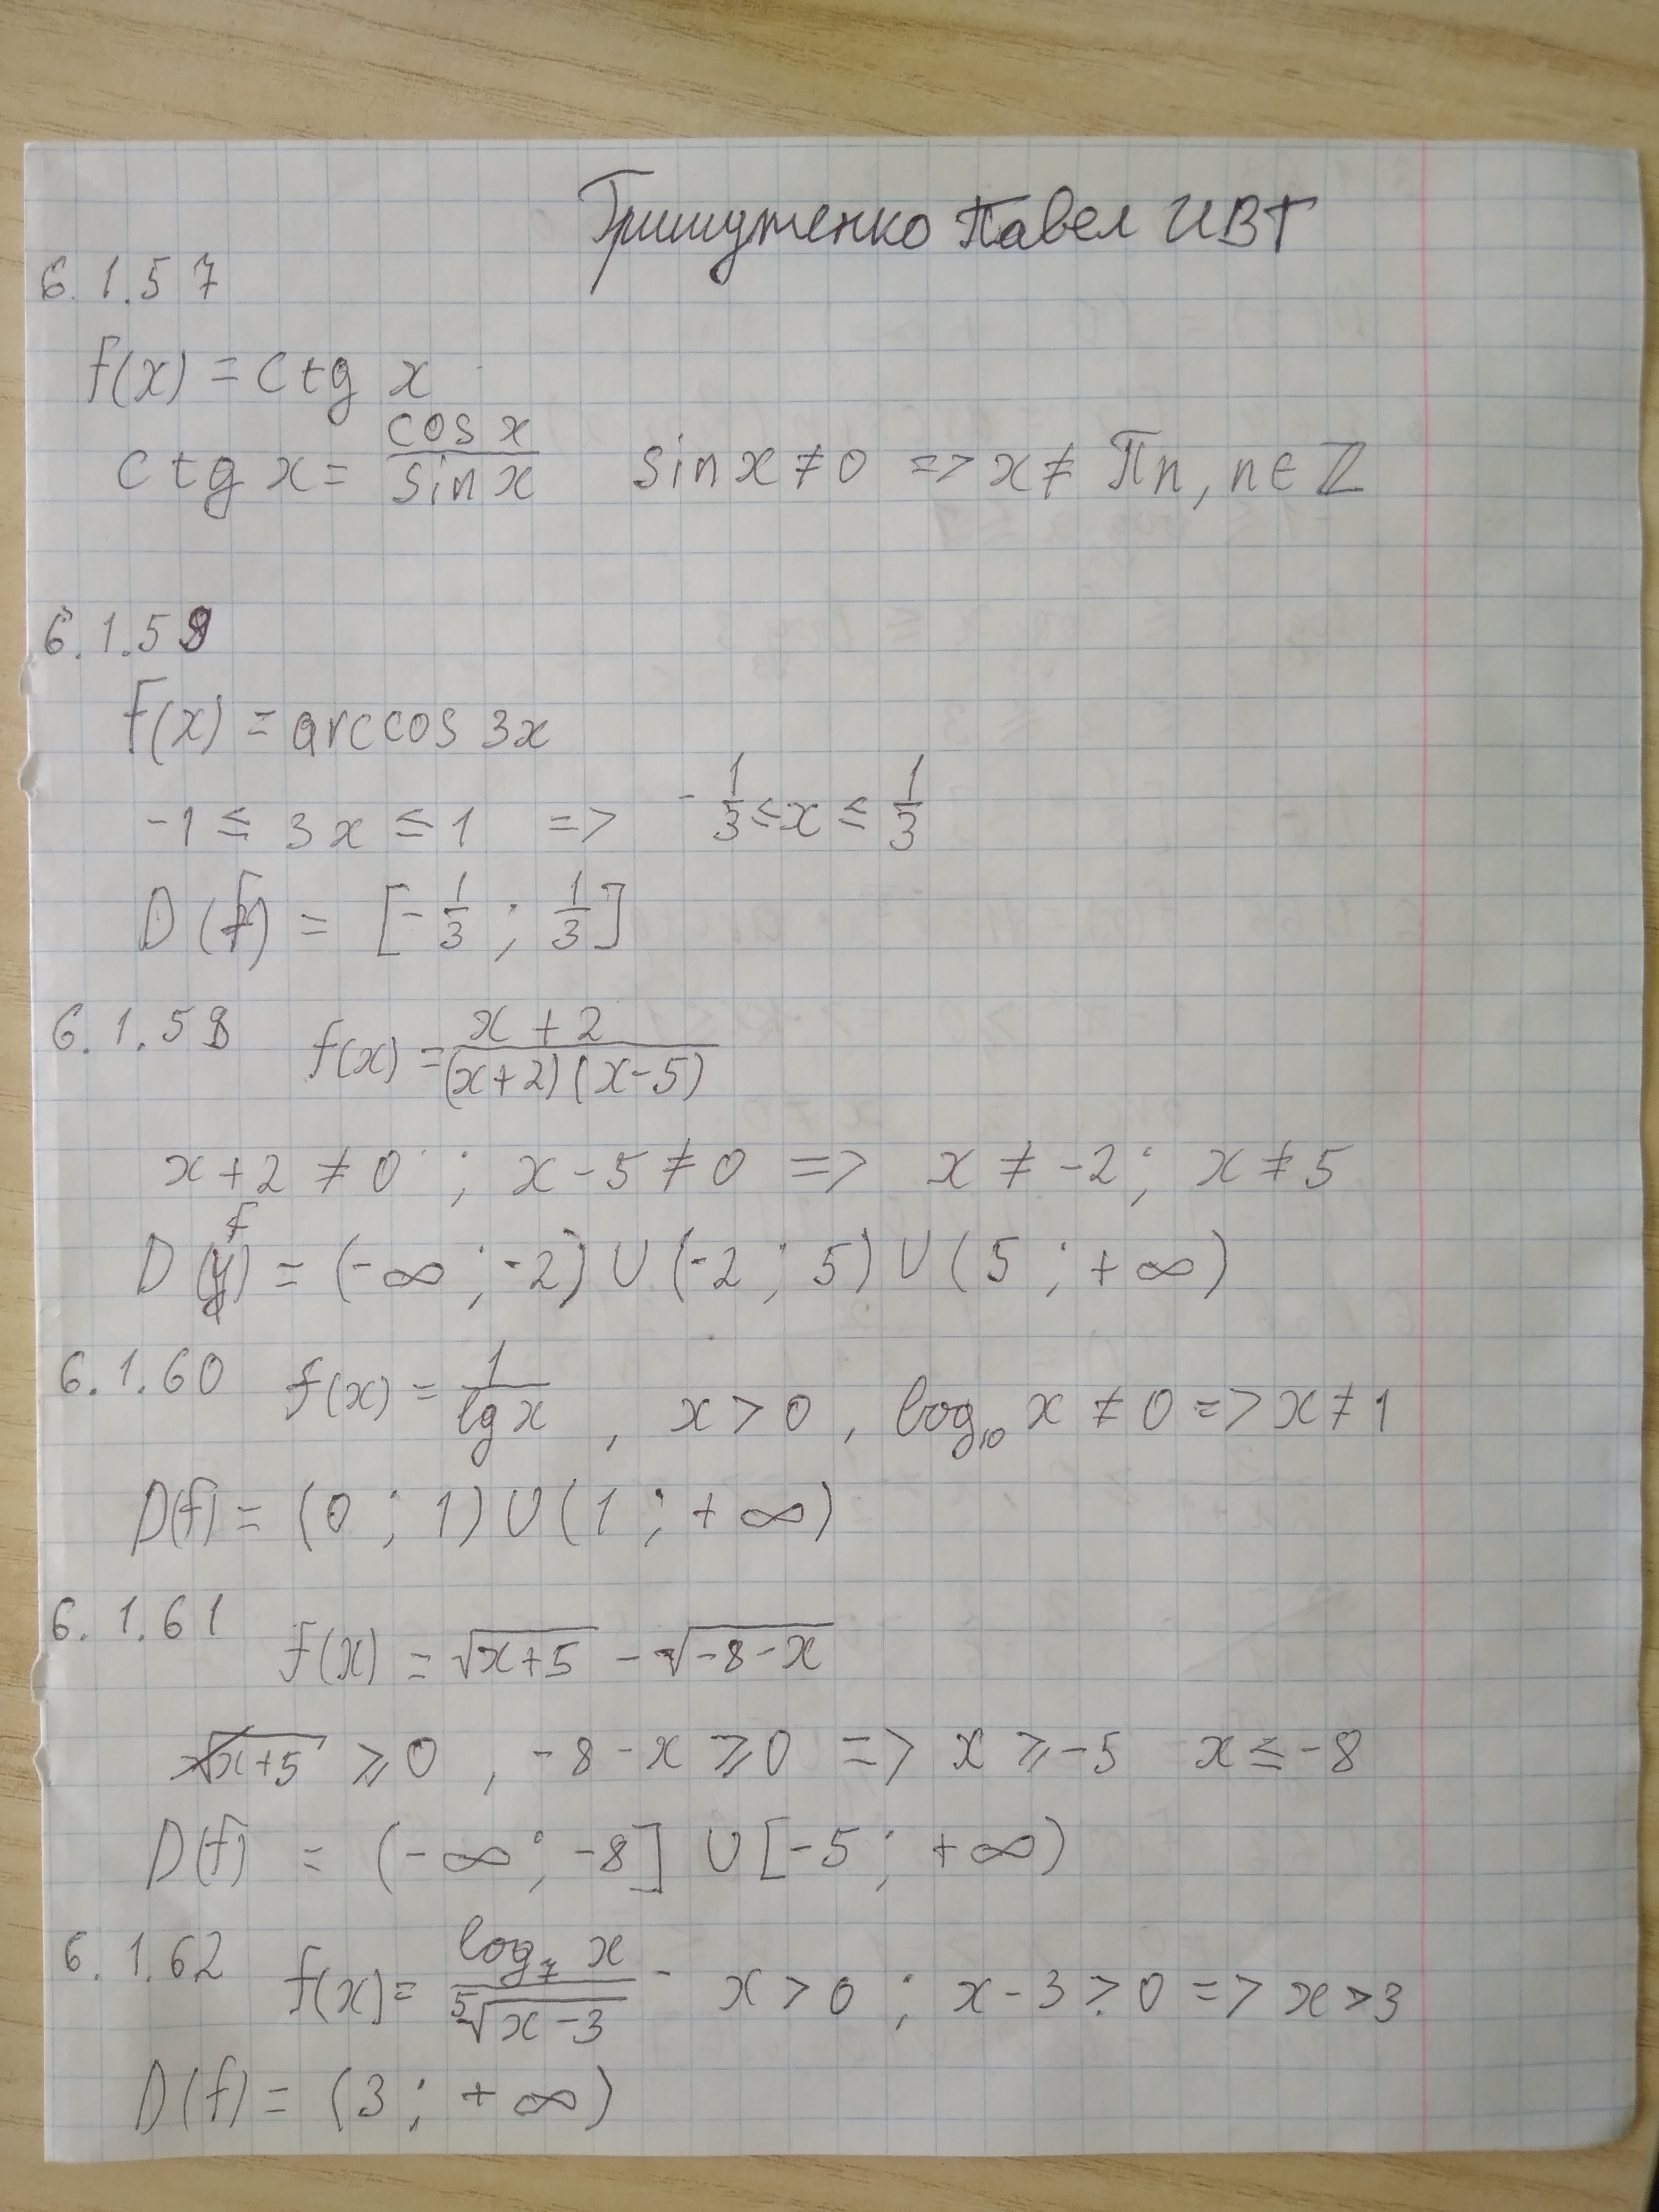 Гришуженко Павел ИВТ
6.1.57
f(x) = ctg x
ctg x = cos x / sin x    sin x ≠ 0 => x ≠ πn, n ∈ ℤ
6.1.59
f(x) = arccos 3x
-1 ≤ 3x ≤ 1 => -1/3 ≤ x ≤ 1/3
D(f) = [-1/3 ; 1/3]
6.1.58 f(x) = (x+2) / (x+2)(x-5)
x+2 ≠ 0 ; x-5 ≠ 0 => x ≠ -2 ; x ≠ 5
D(f) = (-∞ ; -2) ∪ (-2 ; 5) ∪ (5 ; +∞)
6.1.60 f(x) = 1 / lg x , x > 0 , log₁₀ x ≠ 0 => x ≠ 1
D(f) = (0 ; 1) ∪ (1 ; +∞)
6.1.61 f(x) = √(x+5) - √(-8-x)
x+5 ≥ 0 , -8-x ≥ 0 => x ≥ -5 x ≤ -8
D(f) = (-∞ ; -8] ∪ [-5 ; +∞)
6.1.62 f(x) = log₇ x / ⁵√(x-3) - x > 0 ; x-3 > 0 => x > 3
D(f) = (3 ; +∞)